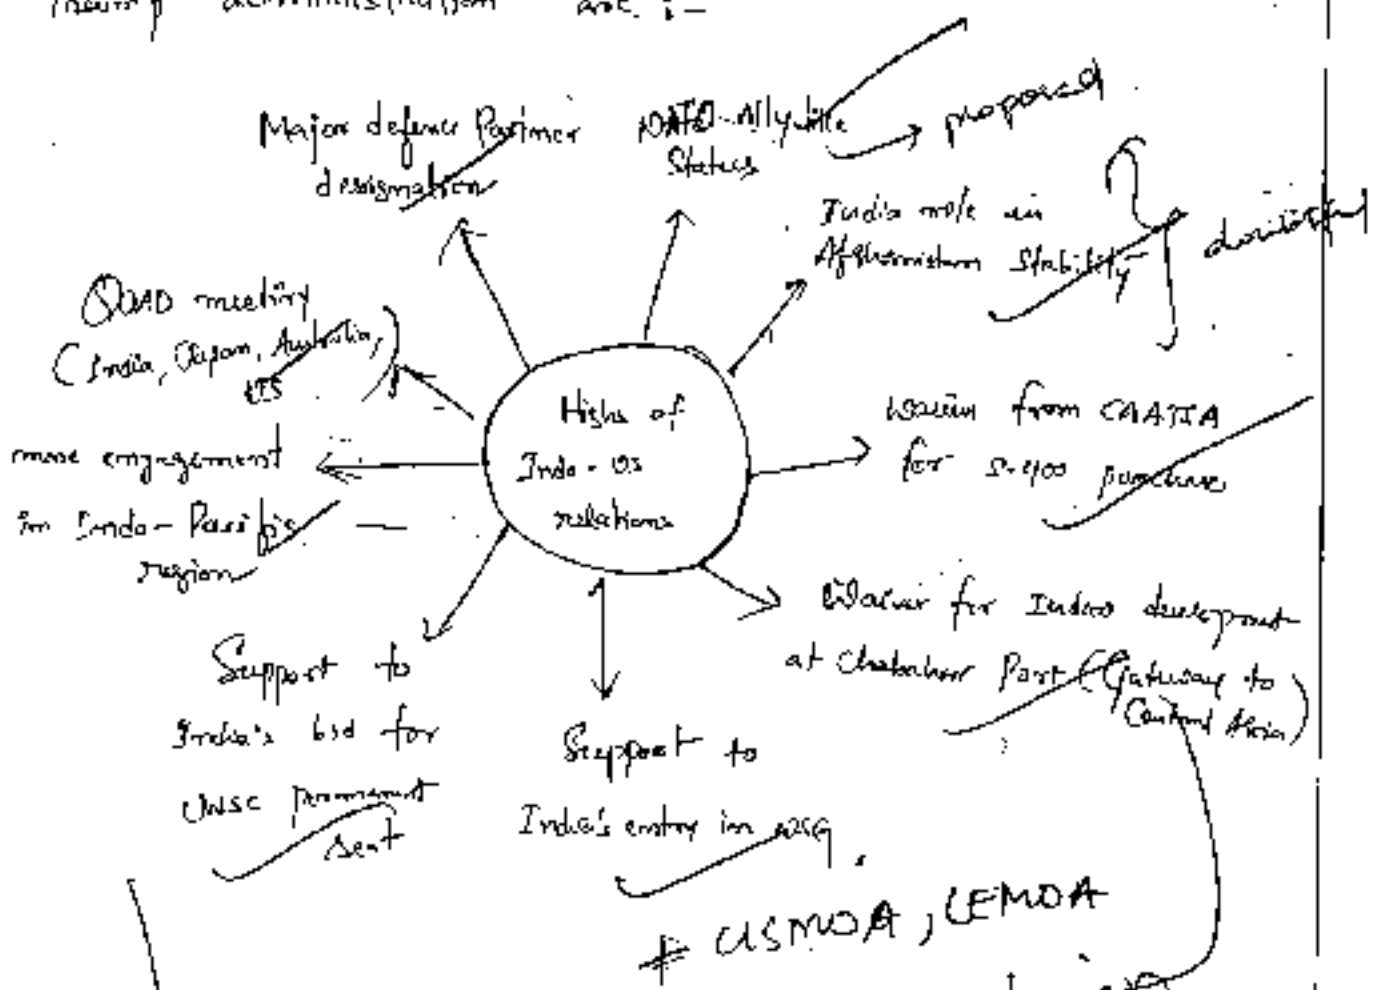 Trump administration are :-
Major defence Partner
designation
NATO-Ally like
Status
→ proposed
India role in
Afghanistan Stability
doubtful
QUAD meeting
(India, Japan, Australia,
US)
Highs of
Indo-US
relations
Waiver from CAATSA
for S-400 purchase
more engagement
in Indo-Pacific
region
Waiver for India development
at Chabahar Port (Gateway to
Central Asia)
Support to
India's bid for
UNSC permanent
seat
Support to
India's entry in NSG.
+ CISMOA, LEMOA